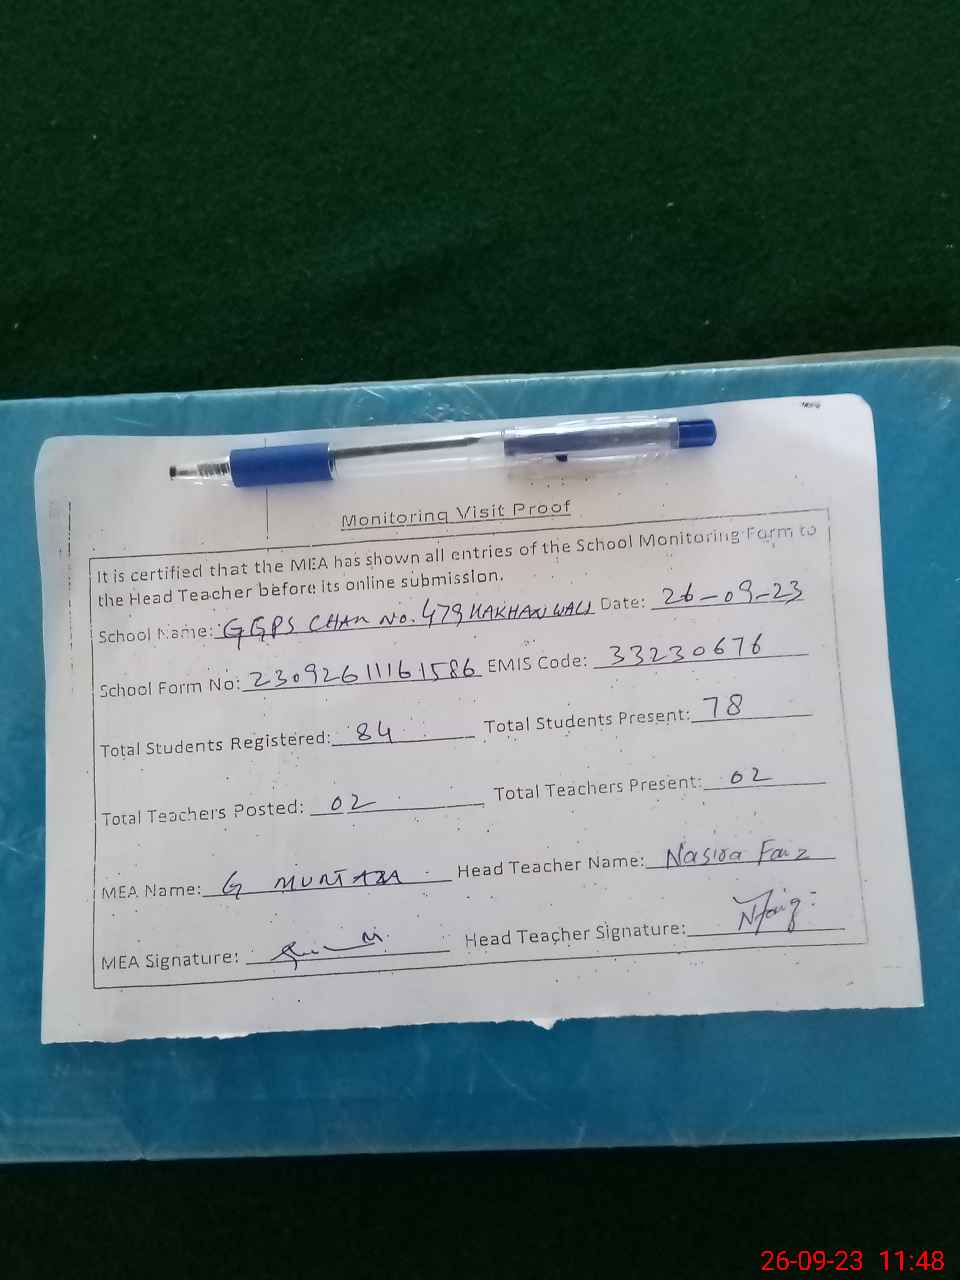 Monitoring Visit Proof
It is certified that the MEA has shown all entries of the School Monitoring Form to
the Head Teacher before its online submission.
School Name: GGPS CHAK No. 479 MAKHAN WALI Date: 26-09-23
School Form No: 23092611161586 EMIS Code: 33230676
Total Students Registered: 84 Total Students Present: 78
Total Teachers Posted: 02 Total Teachers Present: 02
MEA Name: G MURTAZA Head Teacher Name: Nasira Faiz
MEA Signature: Head Teacher Signature: NFaiz
26-09-23 11:48